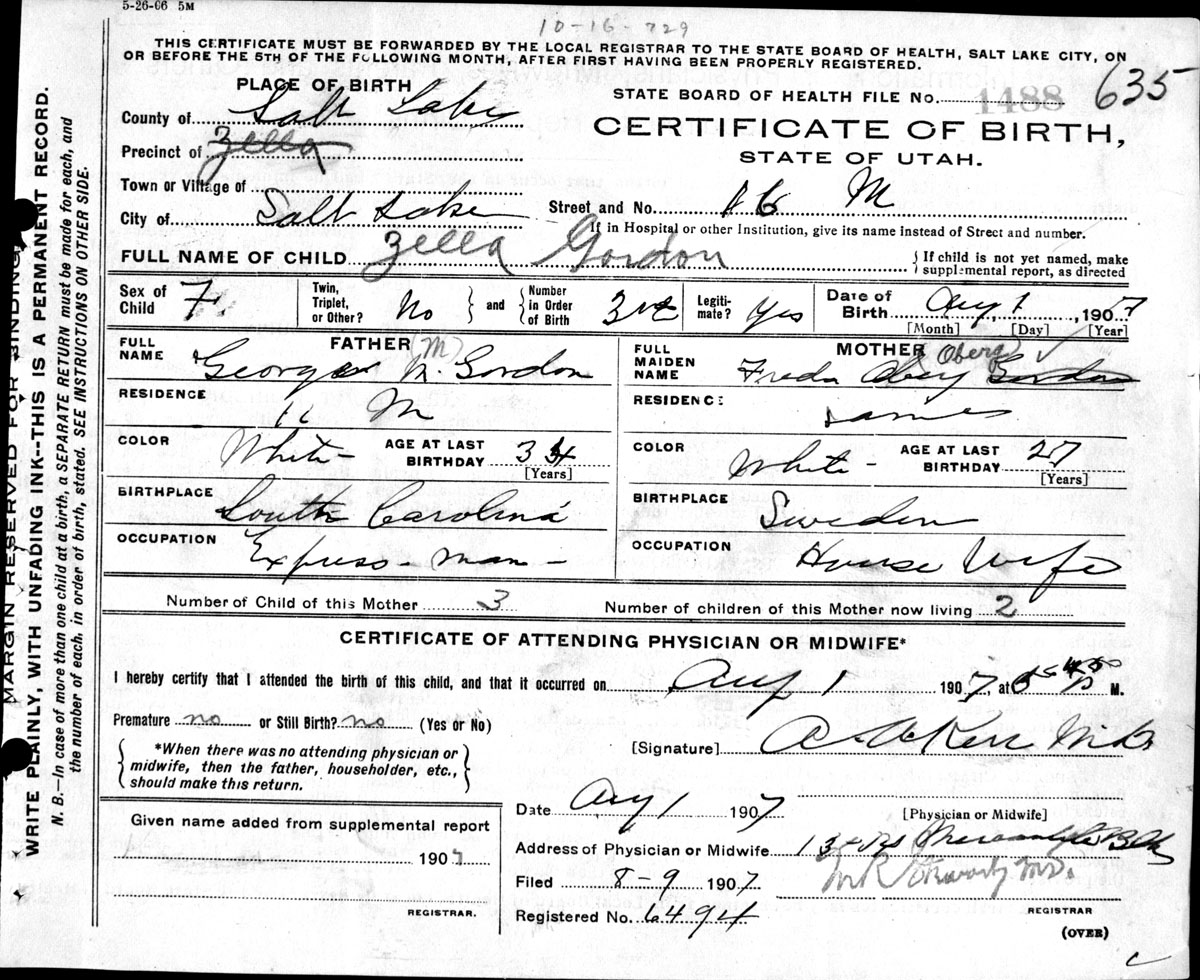 5-26-06 5M
10-16-729
THIS CERTIFICATE MUST BE FORWARDED BY THE LOCAL REGISTRAR TO THE STATE BOARD OF HEALTH, SALT LAKE CITY, ON
OR BEFORE THE 5TH OF THE FOLLOWING MONTH, AFTER FIRST HAVING BEEN PROPERLY REGISTERED.
PLACE OF BIRTH
STATE BOARD OF HEALTH FILE No. 1488 635
County of Salt Lake
CERTIFICATE OF BIRTH,
Precinct of Zella
STATE OF UTAH.
Town or Village of
City of Salt Lake
Street and No. 16 M
If in Hospital or other Institution, give its name instead of Street and number.
FULL NAME OF CHILD Zella Gordon
If child is not yet named, make
supplemental report, as directed
Sex of
Child F.
Twin,
Triplet,
or Other? No
and
Number
in Order
of Birth 3rd
Legiti-
mate? Yes
Date of
Birth Aug 1, 1907
[Month] [Day] [Year]
FATHER (M)
FULL
NAME George M. Gordon
MOTHER (Oberg)
FULL
MAIDEN
NAME Freda Gordon
RESIDENCE M
RESIDENCE
COLOR White AGE AT LAST
BIRTHDAY 34
[Years]
COLOR White - AGE AT LAST
BIRTHDAY 27
[Years]
BIRTHPLACE South Carolina
BIRTHPLACE Sweden
OCCUPATION Express-man-
OCCUPATION House Wife
Number of Child of this Mother 3
Number of children of this Mother now living 2
CERTIFICATE OF ATTENDING PHYSICIAN OR MIDWIFE*
I hereby certify that I attended the birth of this child, and that it occurred on Aug 1 1907, at P M.
Premature no or Still Birth? no (Yes or No)
*When there was no attending physician or
midwife, then the father, householder, etc.,
should make this return.
[Signature] Kerr
Date Aug 1 1907
[Physician or Midwife]
Given name added from supplemental report
190
REGISTRAR.
Address of Physician or Midwife
Filed 8-9 1907
Registered No. 6494
REGISTRAR
(OVER)
MARGIN RESERVED FOR BINDING
WRITE PLAINLY, WITH UNFADING INK--THIS IS A PERMANENT RECORD.
N. B.—In case of more than one child at a birth, a SEPARATE RETURN must be made for each, and
the number of each, in order of birth, stated. SEE INSTRUCTIONS ON OTHER SIDE.